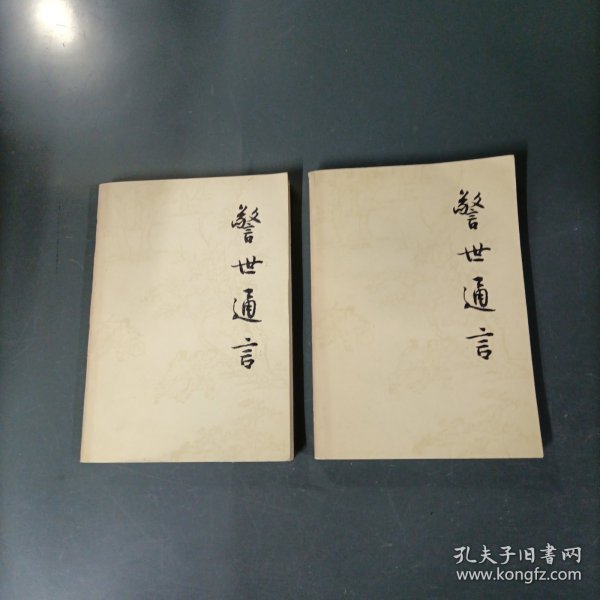 警世通言
警世通言
孔夫子旧書网
www.kongfz.com